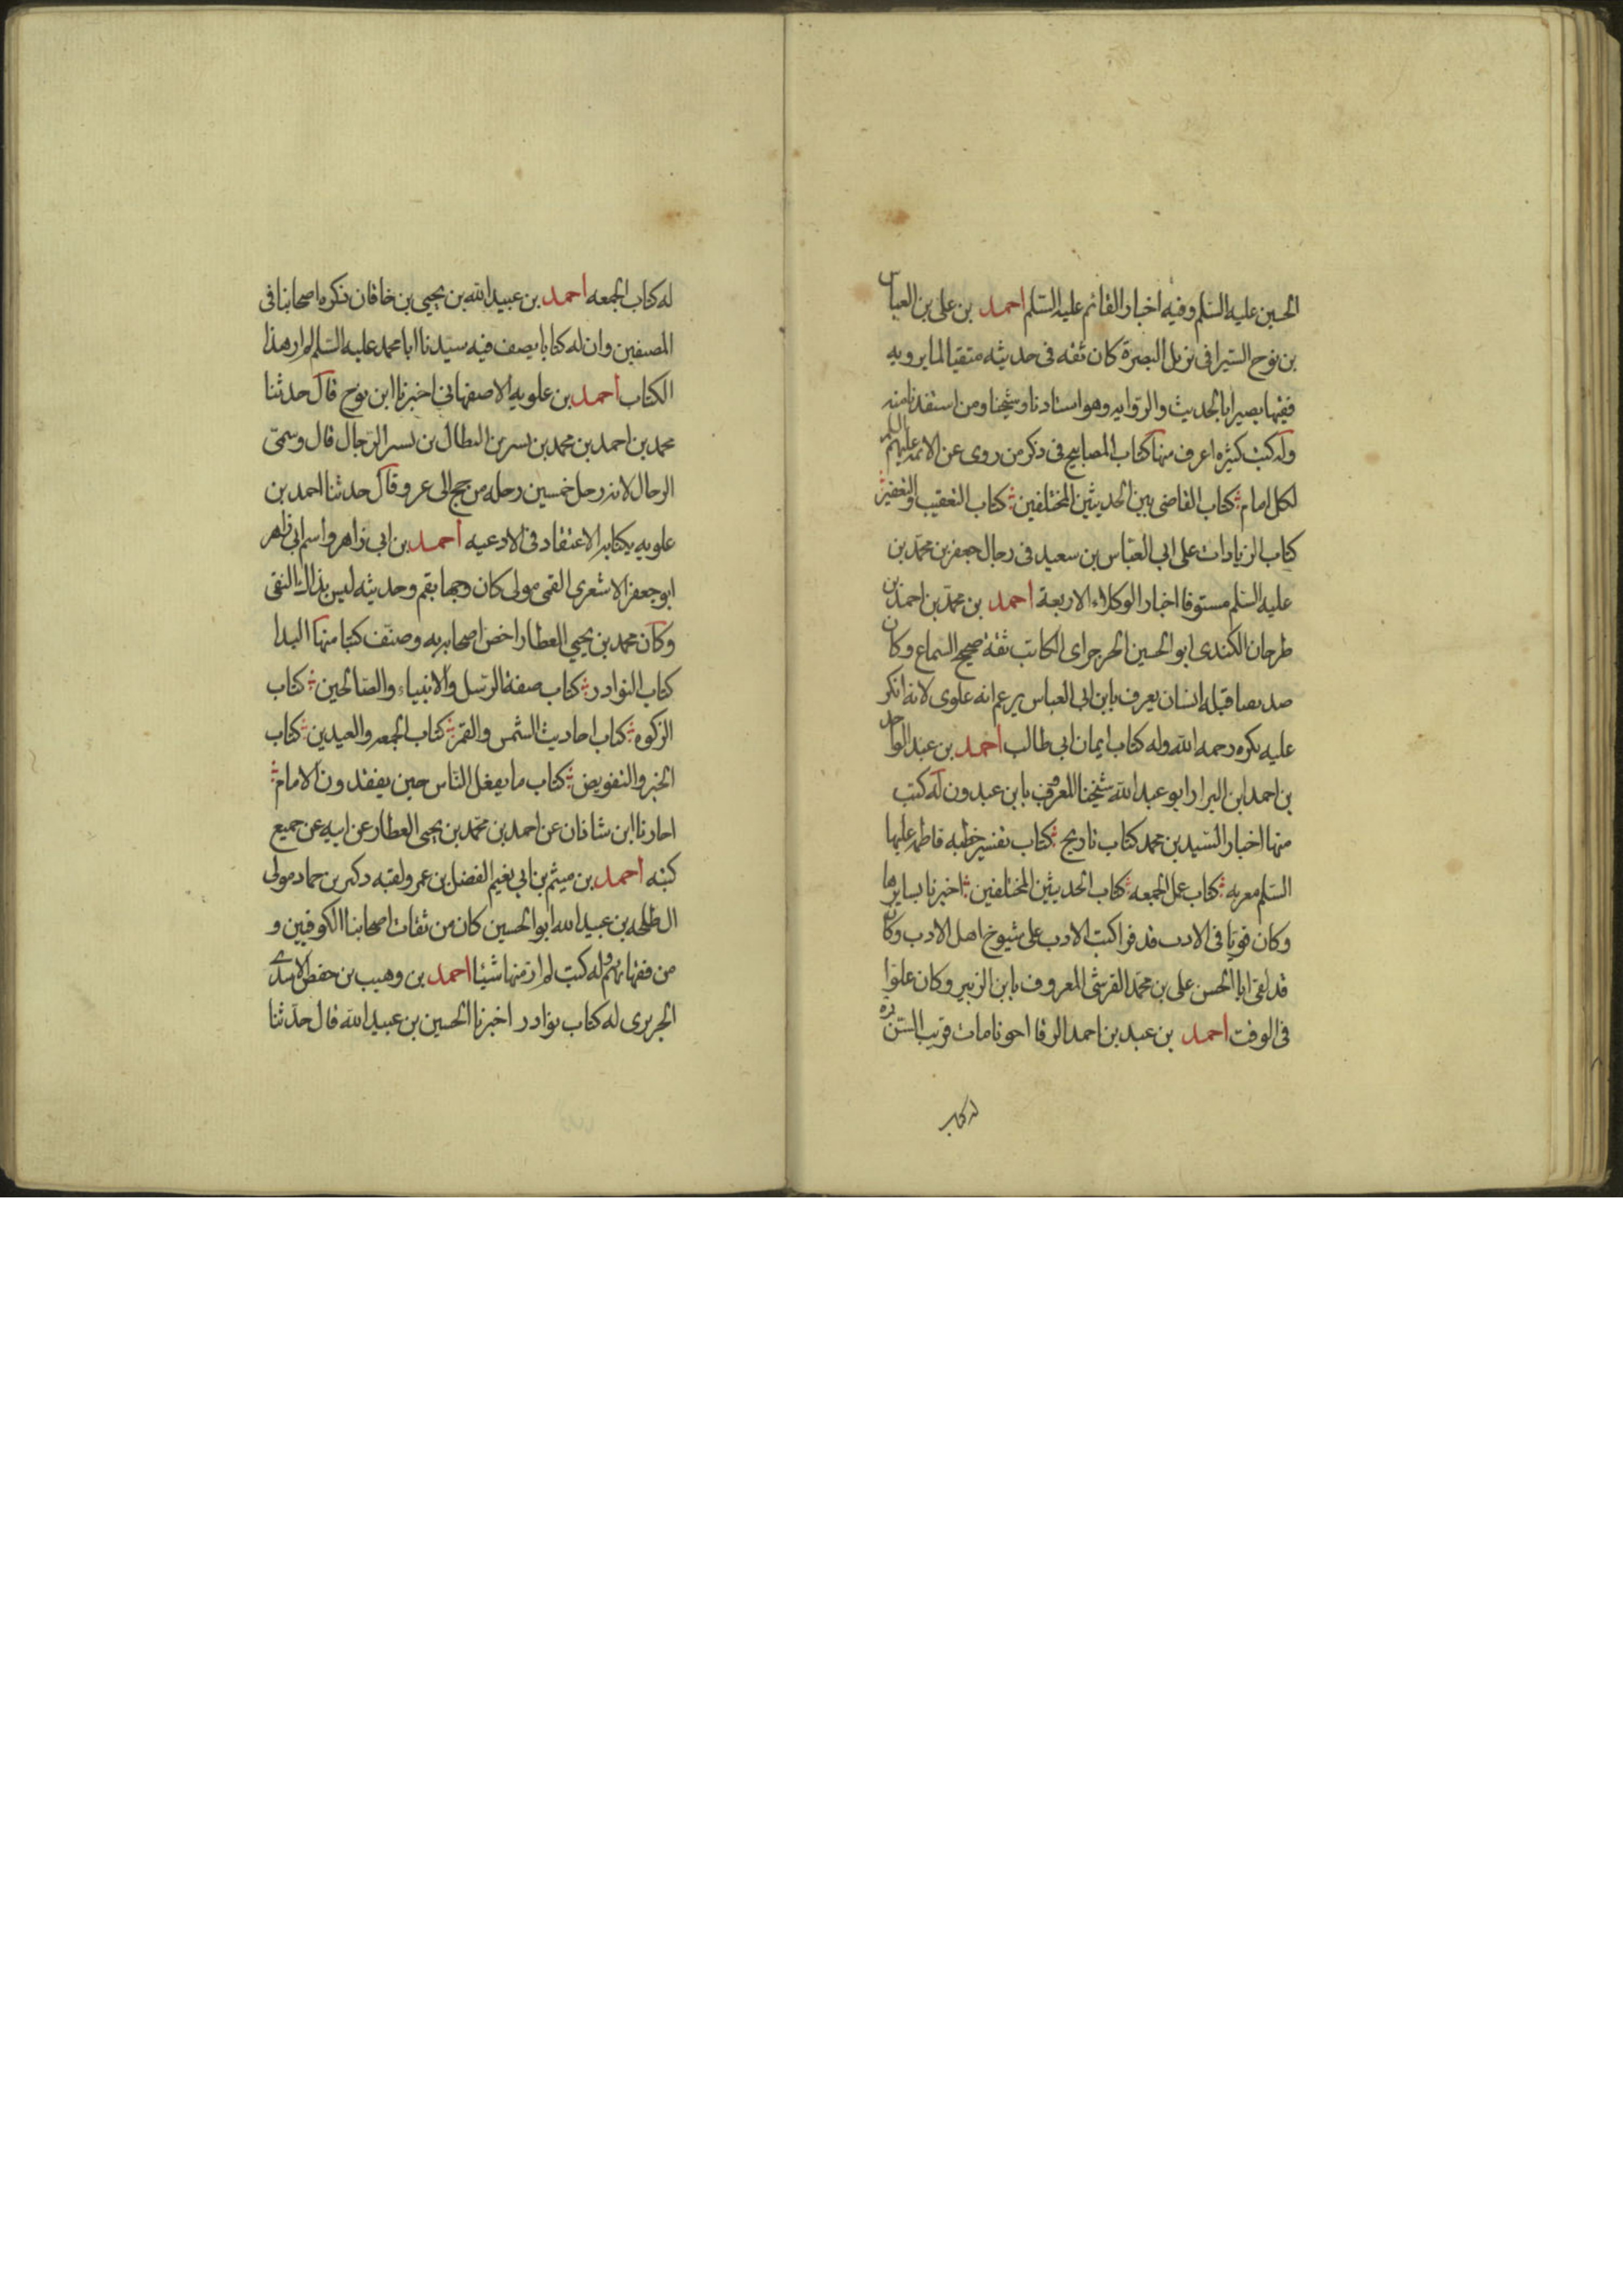 الحسين عليه السلم وفيه اخبار القائم عليه السلم احمد بن على بن العباس
بن نوح السيرافى نزيل البصرة كان ثقه فى حديثه متقيا لما يرويه
فقيها بصيرا بالحديث والروايه وهو استادنا وشيخنا ومن استفدنا منه
وله كتب كثيره اعرف منها كتاب المصابيح فى ذكر من روى عن الائمه عليهم السلم
لكل امام كتاب القاضى بين الحديثين المختلفين كتاب التعقيب والتعفير
كتاب الزيادات على ابى العباس بن سعيد فى رجال جعفر بن محمد بن
عليه السلم مستوفا اخبار الوكلاء الاربعة احمد بن محمد بن احمد بن
طرحان الكندى ابو الحسين الجرجراى الكاتب ثقة صحيح السماع وكان
صديقنا قتله انسان يعرف بابن ابى العباس يزعم انه علوى لانه انكر
عليه نكره رحمه الله وله كتاب ايمان ابى طالب احمد بن عبد الواحد
بن احمد ابن البزار ابو عبد الله شيخنا المعروف بابن عبدون له كتب
منها اخبار السيد بن محمد كتاب تاريخ كتاب تفسير خطبه فاطمه عليها
السلم معربه كتاب عمل الجمعه كتاب الحديثين المختلفين اخبرنا بسايرها
وكان قويا فى الادب قد قرا كتب الادب على شيوخ اهل الادب وكان
قد لقى ابا الحسن على بن محمد القرشى المعروف بابن الزبير وكان علوا
فى الوقت احمد بن عبد بن احمد الرفا اخونا مات قريب السن
له كتاب
له كتاب الجمعه احمد بن عبيد الله بن يحيى بن خاقان ذكره اصحابنا فى
المصنفين وان له كتابا يصف فيه سيدنا ابا محمد عليه السلم لم ار هذا
الكتاب احمد بن علويه الاصفهانى اخبرنا ابن نوح قال حدثنا
محمد بن احمد بن محمد بن بسر بن البطال بن بسر الرحال قال وسمى
الرحال لانه رحل خمسين رحله من حج الى غزو قال حدثنا احمد بن
علويه بكتابه الاعتقاد فى الادعيه احمد بن ابى زاهر واسم ابى زاهر
ابو جعفر الاشعرى القمى مولى كان وجها بقم وحديثه ليس بذلك النقى
وكان محمد بن يحيى العطار اخص اصحابه به وصنف كتبا منها البدا
كتاب النوادر كتاب صفة الرسل والانبياء والصالحين كتاب
الزكوه كتاب احاديث الشمس والقمر كتاب الجمعه والعيدين كتاب
الجبر والتفويض كتاب ما يفعل الناس حين يفقدون الامام
اجازنا ابن شاذان عن احمد بن محمد بن يحيى العطار عن ابيه عن جميع
كتبه احمد بن ميثم بن ابى نعيم الفضل بن عمر ولقبه دكين بن حماد مولى
ال طلحه بن عبيد الله ابو الحسين كان من ثقات اصحابنا الكوفيين و
من فقهائهم وله كتب لم ار منها شيئا احمد بن وهيب بن حفص الاسدى
الجريرى له كتاب نوادر اخبرنا الحسين بن عبيد الله قال حدثنا